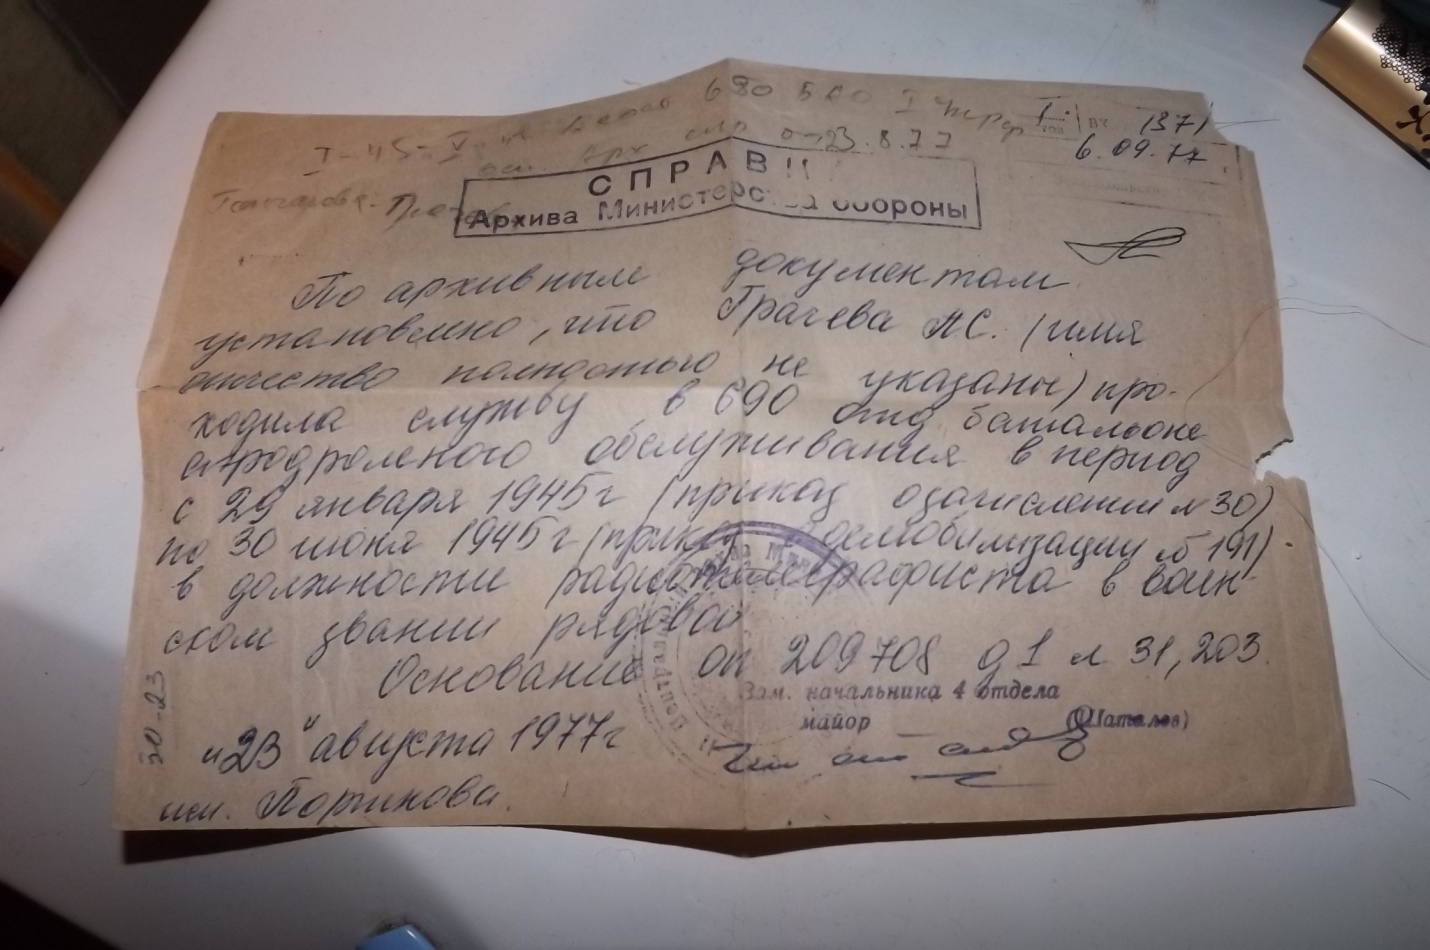 680 БАО I
I-45-V
1371
23.8.77
6.09.77
СПРАВ
Архива Министерства обороны
По архивным документам
установлено, что Грачева М.С. (имя
отчество полностью не указаны) про-
ходила службу в 690 отд батальоне
аэродромного обслуживания в период
с 29 января 1945г (приказ о зачислении № 30)
по 30 июня 1945г (приказ о демобилизации № 191)
в должности радиотелеграфиста в воин-
ском звании рядовой
Основание оп 209708 д 1 л 31, 203.
Зам. начальника 4 отдела
майор (Шаталов)
"23" августа 1977г
исп.
30-23